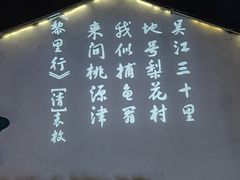 吴江三十里
地号梨花村
我似捕鱼翁
来问桃源津
《黎里行》[清]袁枚